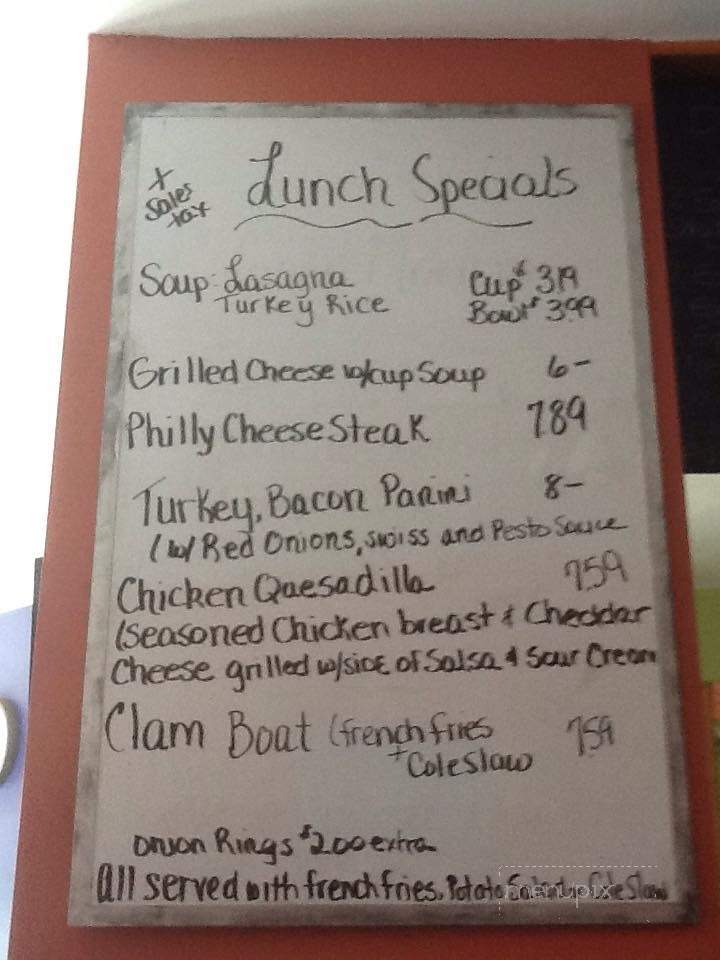 +
Sales
tax
Lunch Specials
Soup: Lasagna Cup $ 319
Turkey Rice Bowl $ 399
Grilled Cheese w/cup Soup 6-
Philly Cheese Steak 789
Turkey, Bacon Panini 8-
(w/ Red Onions, swiss and Pesto Sauce
Chicken Quesadilla 759
(Seasoned Chicken breast & Cheddar
Cheese grilled w/side of Salsa & Sour Cream
Clam Boat (french fries 759
+ Coleslaw
Onion Rings $2.00 extra
All served with french fries, Potato Salad, Cole Slaw
menupix